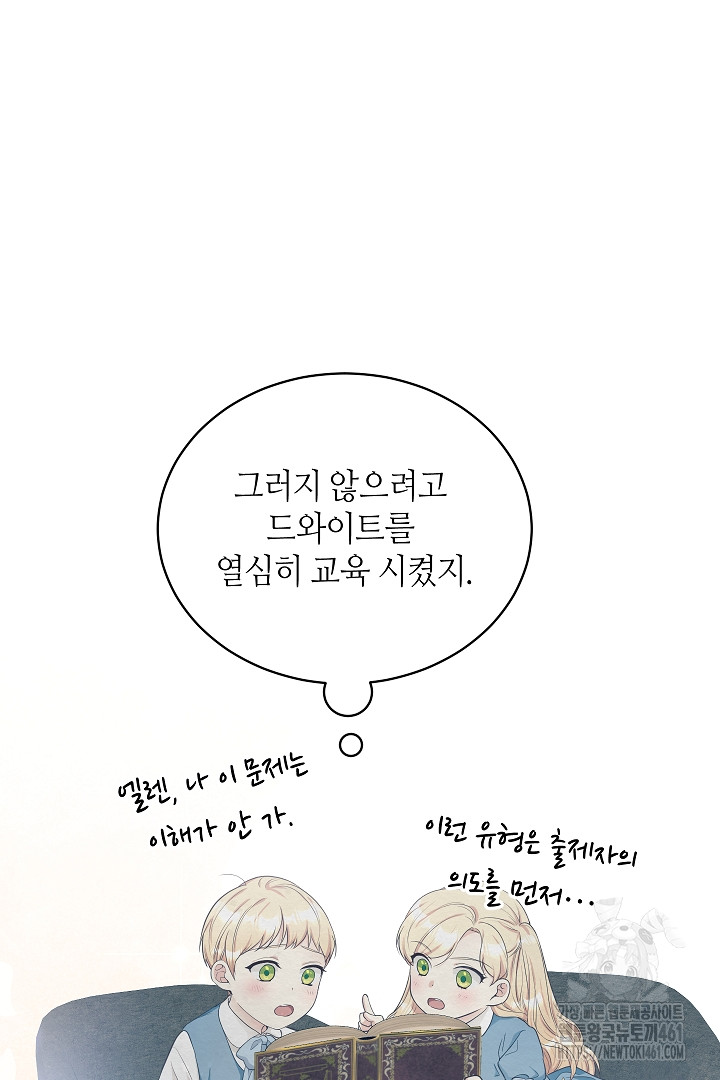 그러지 않으려고
드와이트를
열심히 교육 시켰지.
엘렌, 나 이 문제는
이해가 안 가.
이런 유형은 출제자의
의도를 먼저...
가장 빠른 웹툰제공사이트
웹툰왕국뉴토끼461
HTTPS://NEWTOKI461.COM